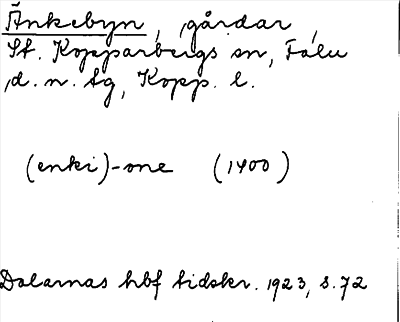 Änkebyn, gårdar,
St. Kopparbergs sn, Falu
d. n. tg, Kopp. l.
(enki)-one (1400)
Dalarnas hbf tidskr. 1923, s. 72